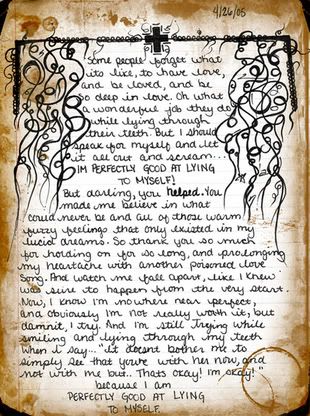 4/26/05
Some people forget what
its like, to have love,
and be loved, and be
so deep in love. Oh what
a wonderful job they do
while lying through
their teeth. But I should
speak for myself and let
it all out and scream...
IM PERFECTLY GOOD AT LYING
TO MYSELF!
But darling, you helped. You
made me believe in what
could never be and all of those warm
fuzzy feelings that only existed in my
lucid dreams. So thank you so much
for holding on for so long, and prolonging
my heartache with another poisoned love
song. And watch me fall apart, like I knew
was sure to happen from the very start.
Now, I know I'm nowhere near perfect,
and obviously I'm not really worth it, but
damnit, I try. And I'm still trying while
smiling and lying through my teeth
when I say... "it doesnt bother me to
simply see that you're with her now, and
not with me but. Thats okay! I'm okay!"
because I am
PERFECTLY GOOD AT LYING
TO MYSELF.